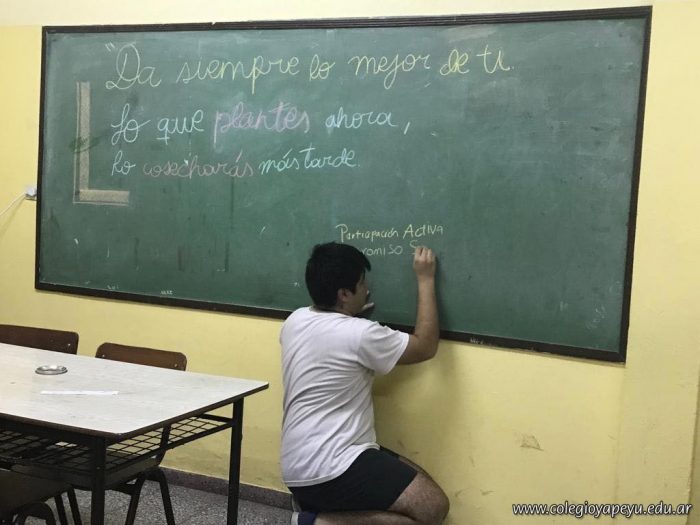 "Da siempre lo mejor de ti.
Lo que plantes ahora,
lo cosecharás más tarde.
Participación Activa
www.colegioyapeyu.edu.ar